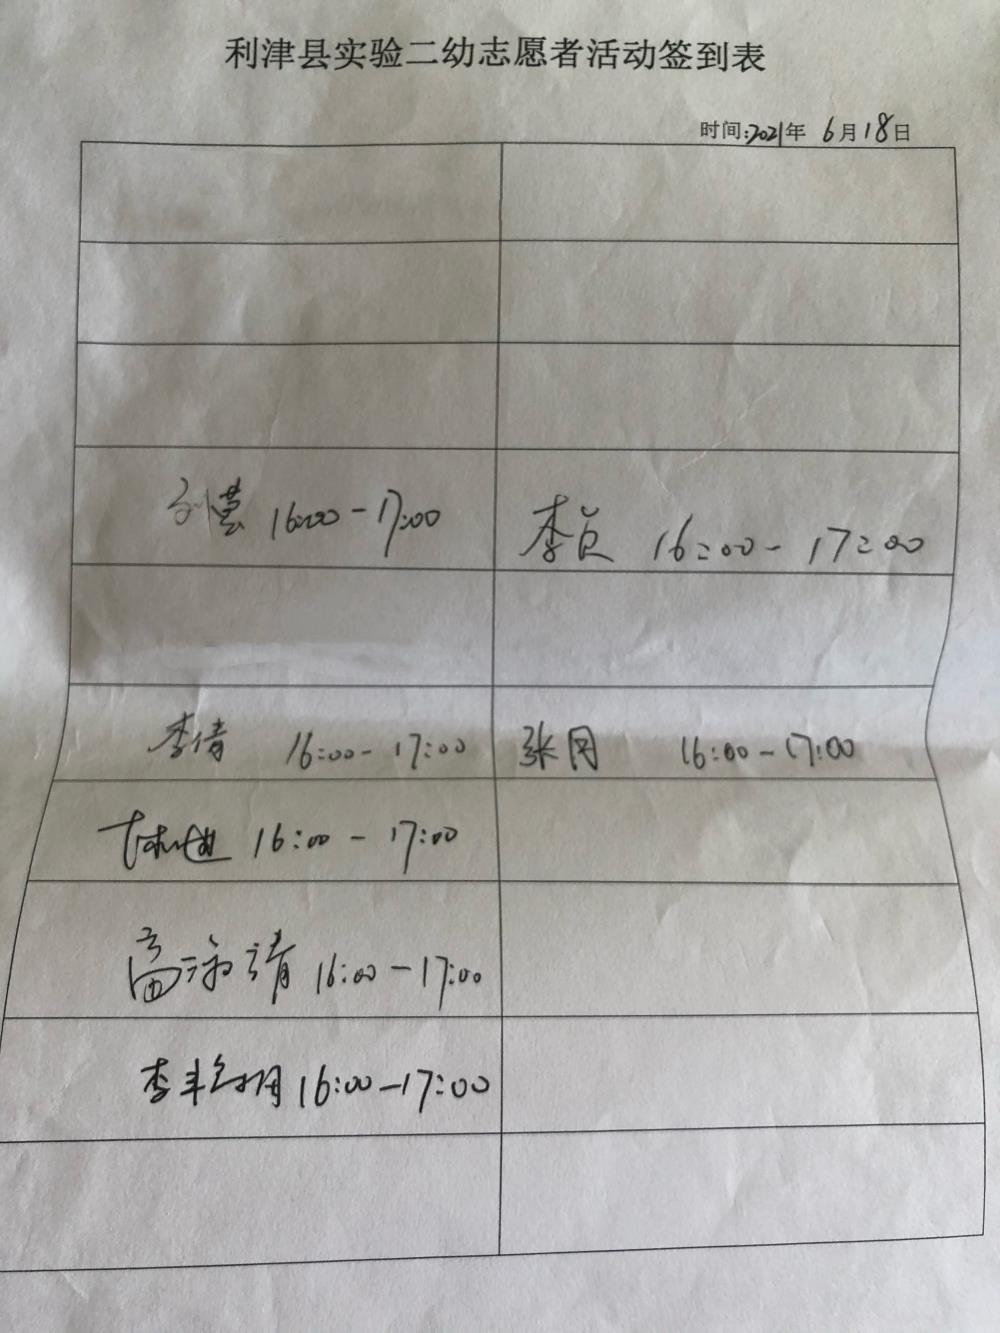 利津县实验二幼志愿者活动签到表
时间:2021年 6月18日
16:00-17:00
李贞 16:00-17:00
李倩 16:00-17:00
张冈 16:00-17:00
16:00-17:00
高沛靖 16:00-17:00
李 16:00-17:00